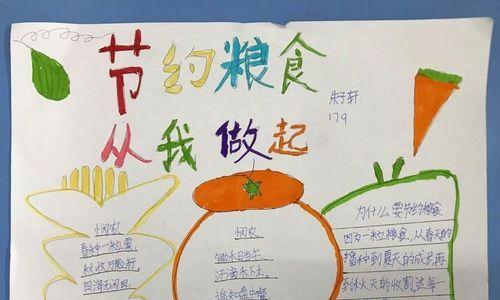 节约粮食
从我做起
朱子轩
179
悯农
春种一粒粟,
秋收万颗籽,
四海无闲田
悯农
锄禾日当午,
汗滴禾下土。
谁知盘中餐
为什么要节约粮食
因为一粒粮食,从春天的
播种到夏天的成长再
到秋天的收割这每一